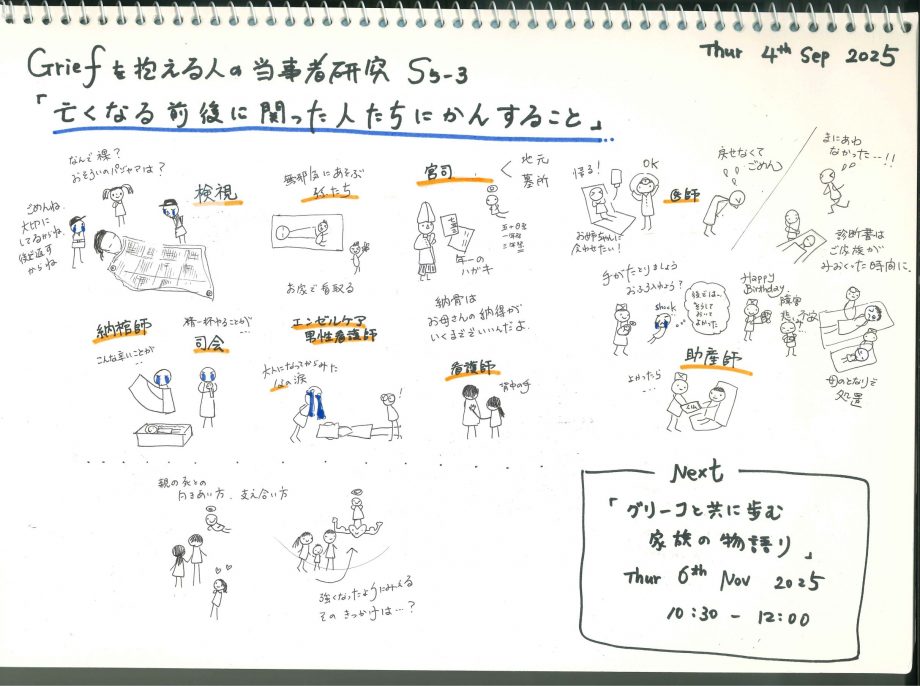 Thur 4th Sep 2025
Griefを抱える人の当事者研究 S5-3
「亡くなる前後に関った人たちにかんすること」
なんで裸?
おそろいのパジャマは?
検視
ごめんね
大切に
してるからね
後返す
からね
無邪気にあそぶ
お家で看取る
宮司
地元
墓所
五十日祭
一年祭
三年祭
年一の
ハガキ
納骨は
お母さんの納得が
いくまででいいんだよ。
帰る!
OK
医師
お姉ちゃんに
会わせたい!
戻せなくて
ごめん
まにあわ
なかった…!!
診断書は
ご家族が
みおくった時間に.
納棺師
こんな辛いことが
…
精一杯やることが
司会
エンゼルケア
男性看護師
大人になってからみた
涙
看護師
背中の手
手がたとりましょう
おふろ入れよう?
shock
後では、
そうして
おいて
よかった
Happy
Birthday
助産師
よかったら
…
母のとなりで
処置
親の死との
向きあい方、支え合い方
強くなったようにみえる
そのきっかけは…?
Next
「グリーコと共に歩む
家族の物語り」
Thur 6th Nov 2025
10:30 - 12:00